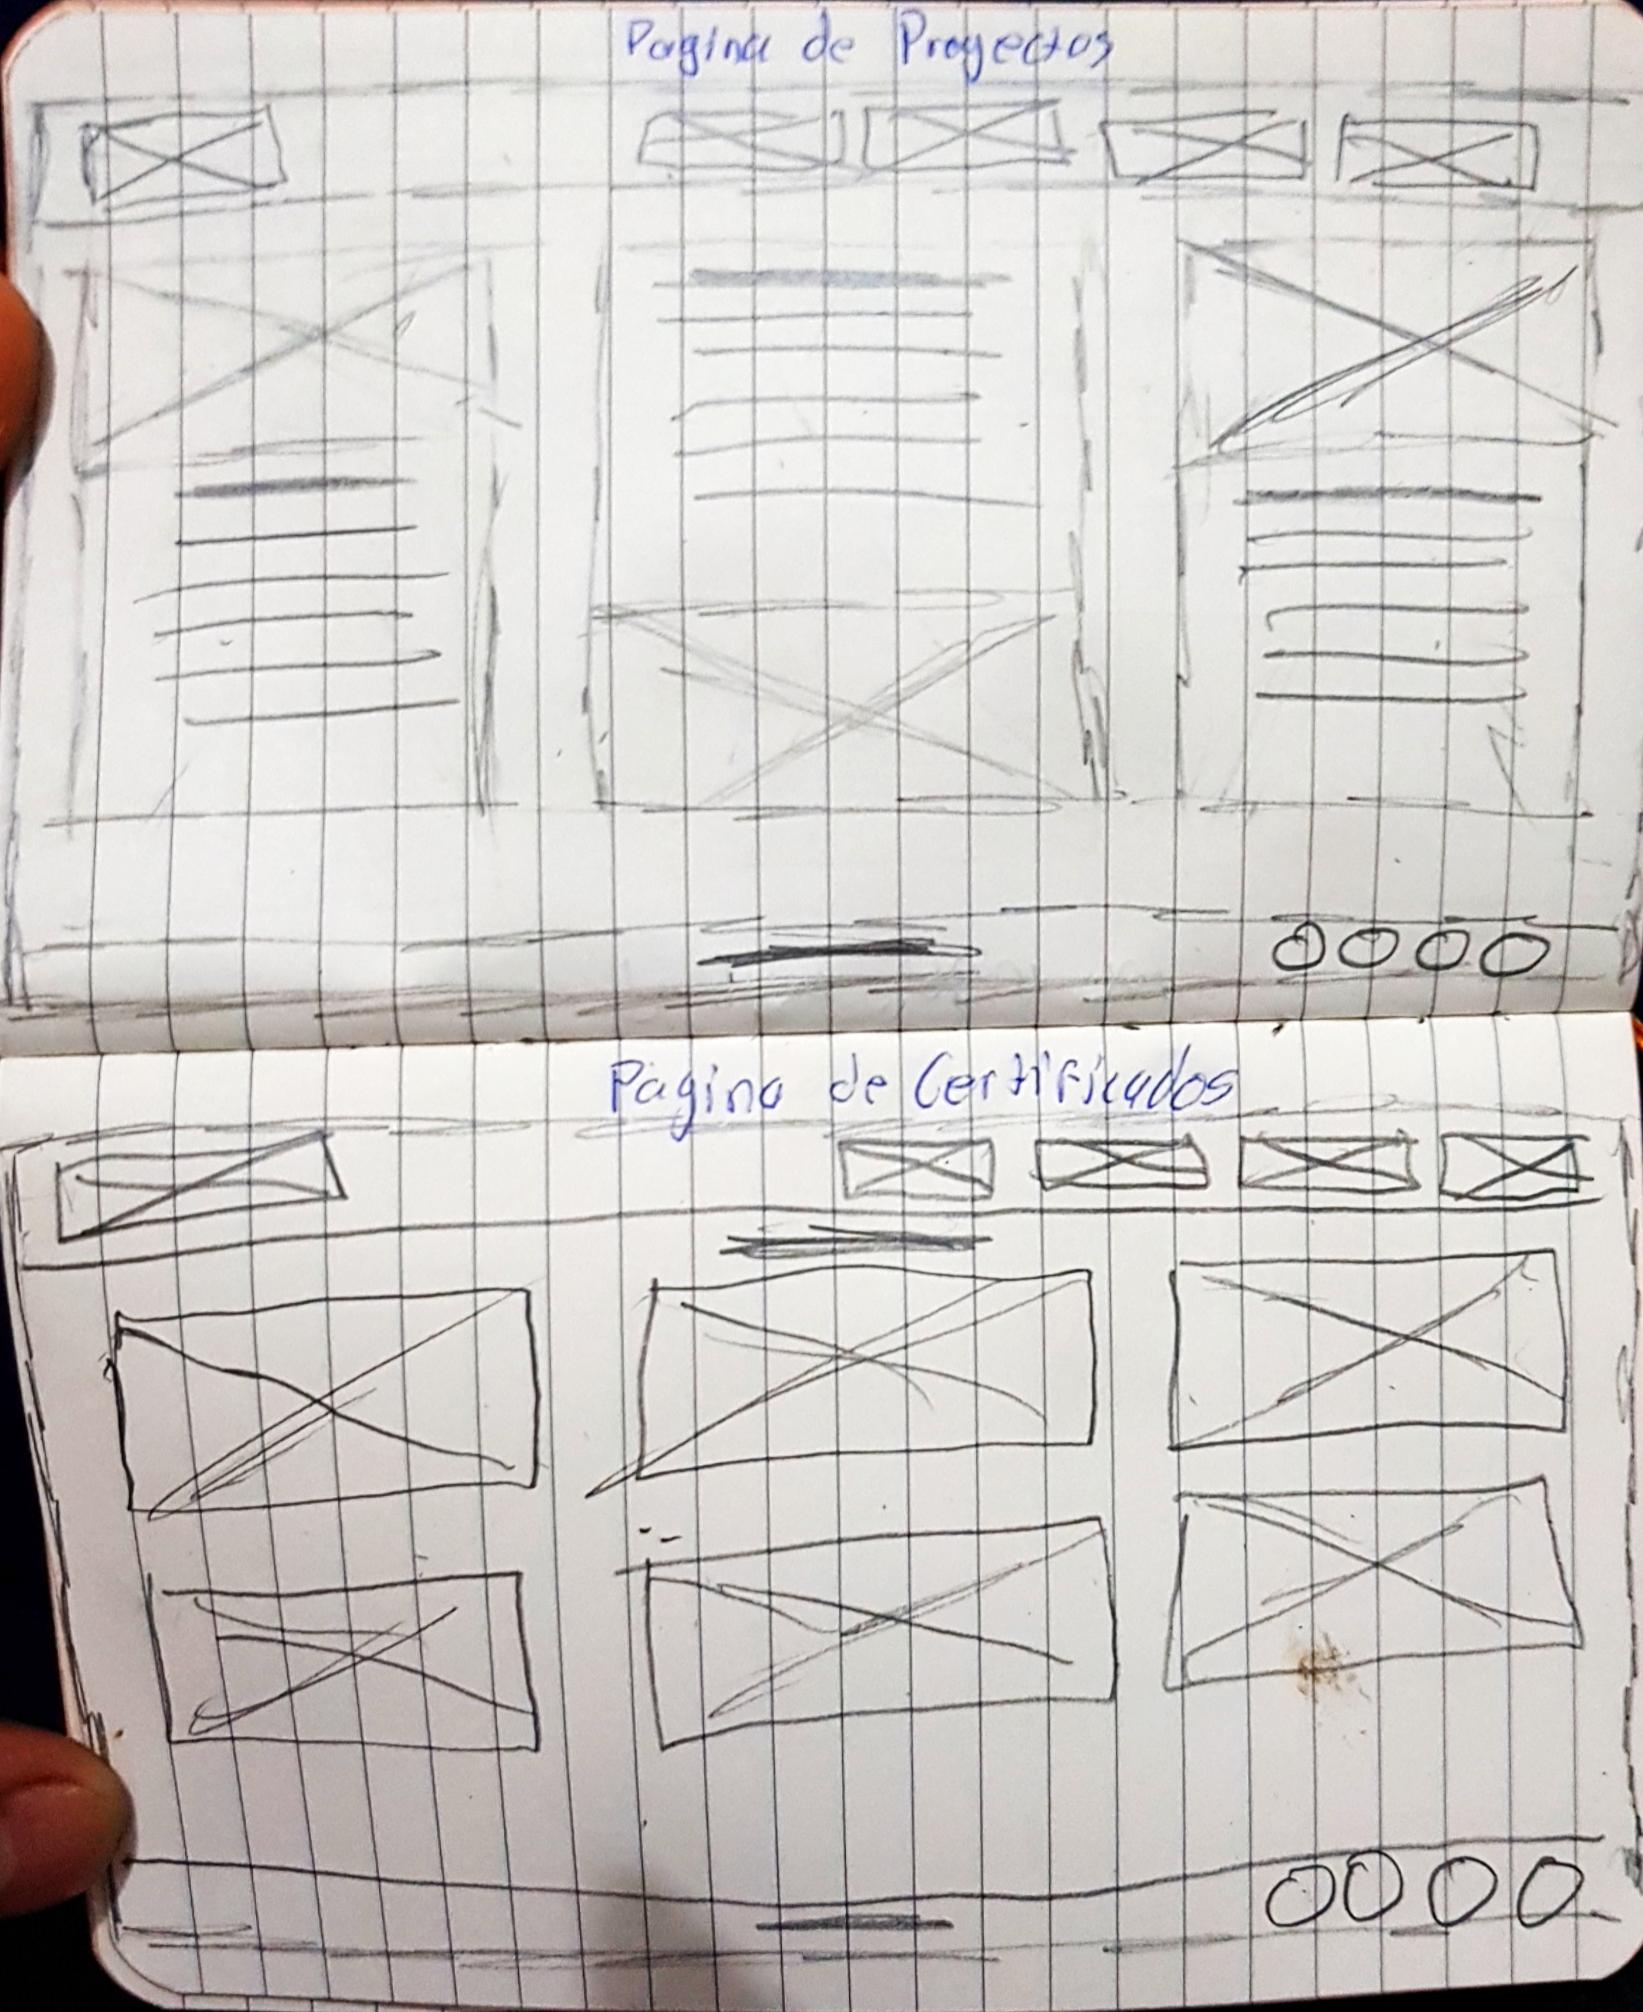 Pagina de Proyectos
Pagina de Certificados